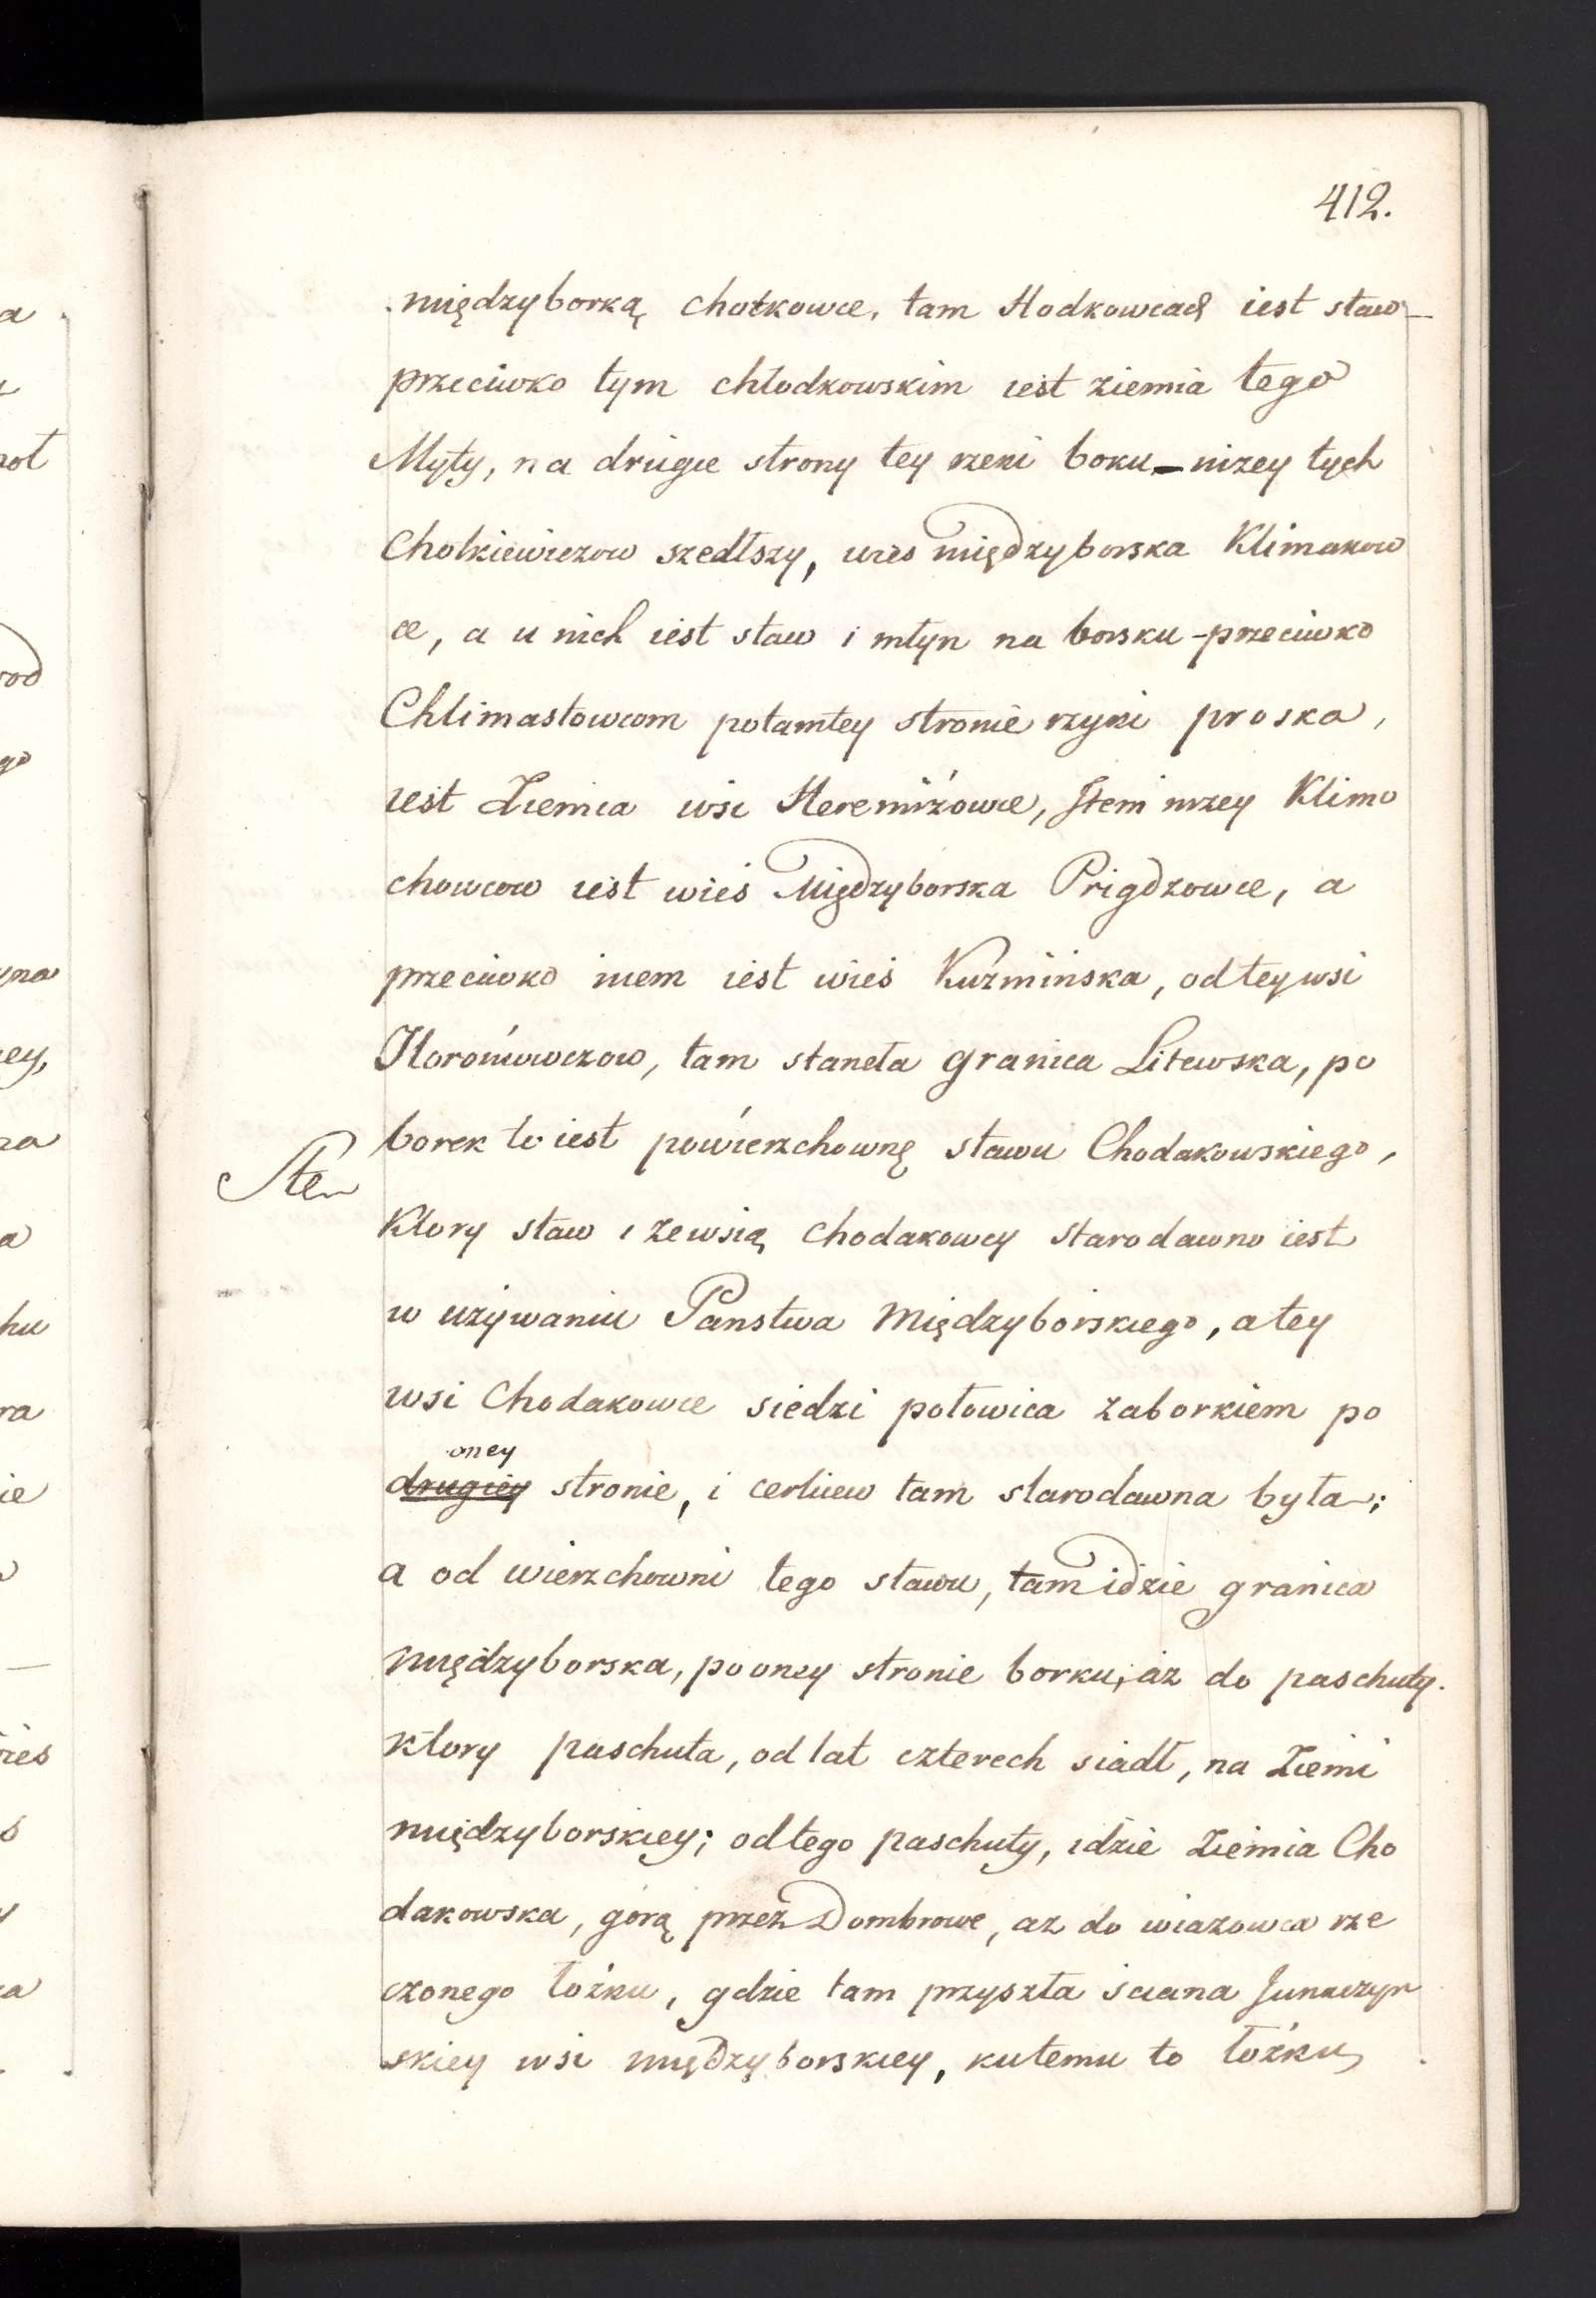 412.
międzyborką chotkowce, tam Hodkowcach iest staw—
przeciwko tym chłodkowskim iest ziemia tego
Myty, na drugie strony tey rzeki boku – nizey tych
Chotkiewiczow szedłszy, wies międzyborska Klimakow
ce, a u nich iest staw i młyn na borsku – przeciwko
Chlimastowcom potamtey stronie rzyki proska,
iest Ziemia wsi Heremiżowce, Item nizey Klimo
chowcow iest wieś Międzyborska Prigdzowce, a
przeciwko niem iest wieś Kuzmińska, odteywsi
Horoniowczow, tam staneła granica Litewska, po
borek to iest powierzchownę stawu Chodakowskiego,
Ite
Ktory staw i zewsią Chodakowcy starodawno iest
w uzywaniu Panstwa Międzyborskiego, atey
wsi Chodakowce siedzi połowica zaborkiem po
oney
drugiey stronie, i cerkiew tam starodawna była;
a od wierzchowni tego stawu, tam idzie granica
międzyborska, po oney stronie borku, aż do paschuty.
ktory paschuta, od lat czterech siadł, na Ziemi
międzyborskiey; odtego paschuty, idzie Ziemia Cho
dakowska, górą przez Dombrowe, az do wiazowca rze
czonego łożku, gdzie tam przyszła sciana Junaczyn
skiey wsi międzyborskiey, kutemu to łożku